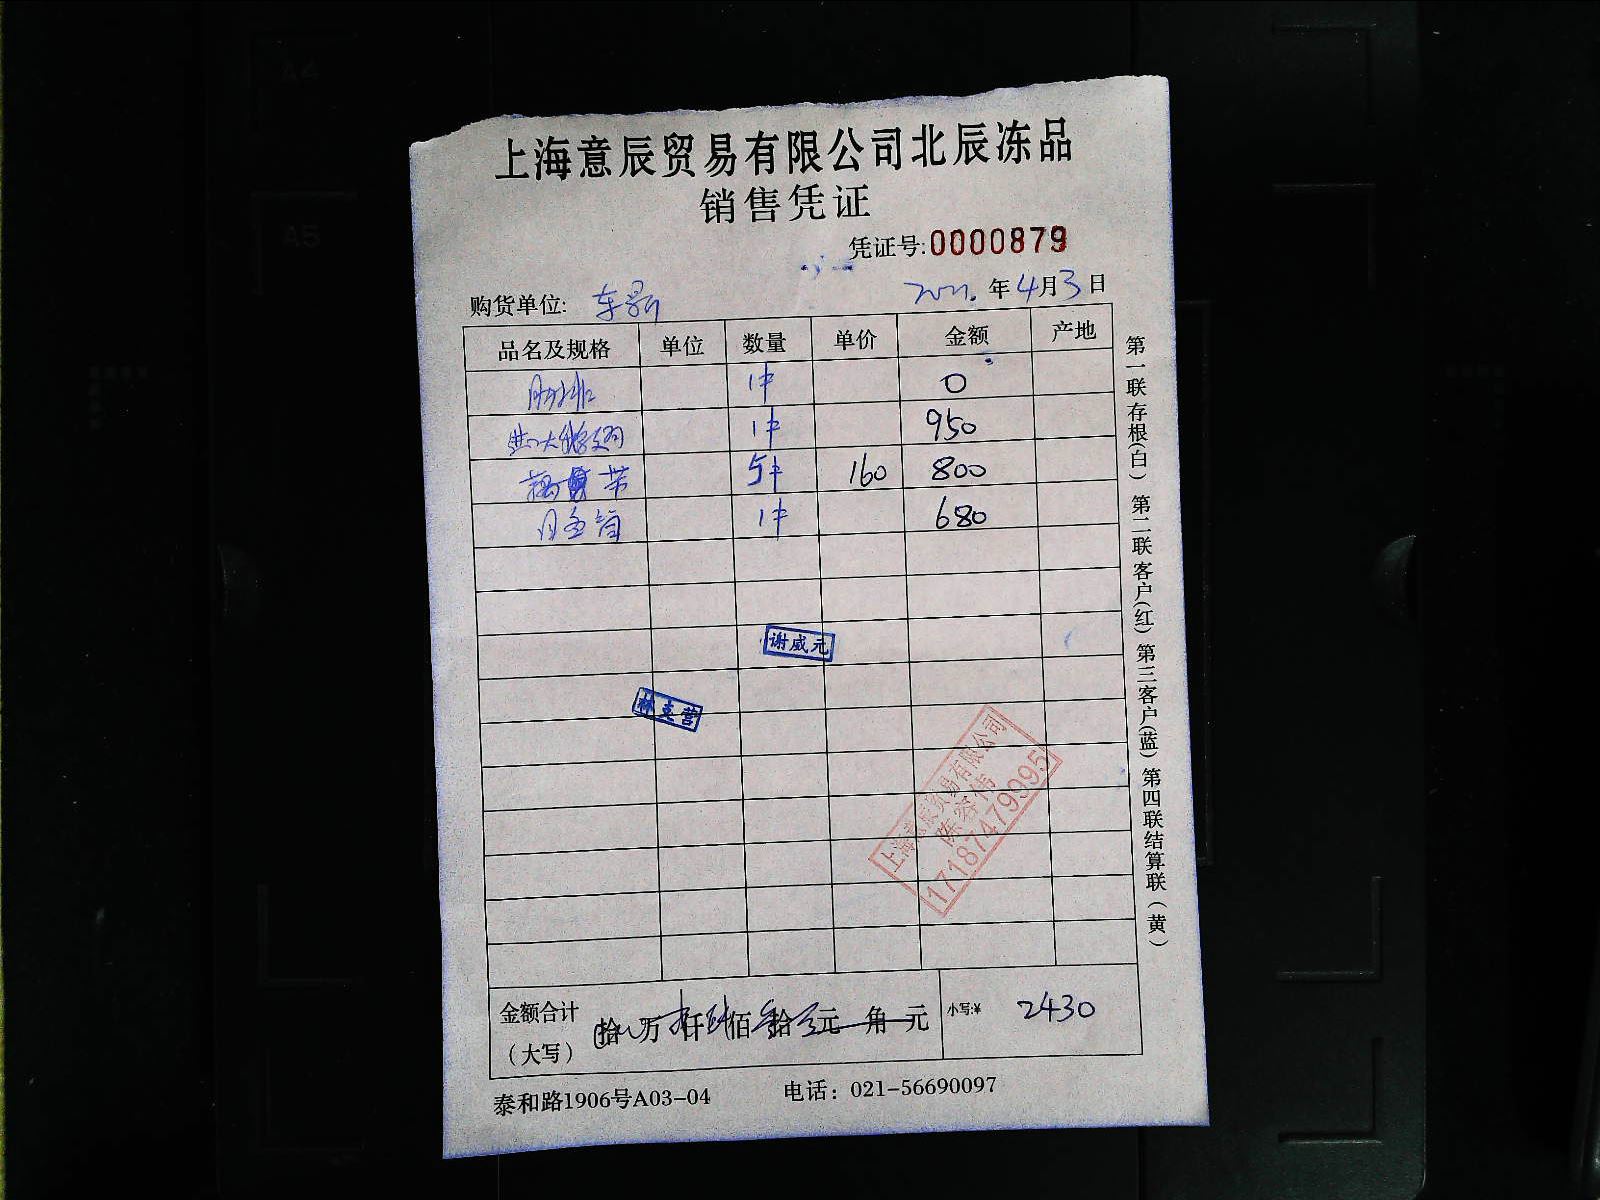 A4
A5
上海意辰贸易有限公司北辰冻品
销售凭证
凭证号:0000879
购货单位: 2021.年4月3日
品名及规格 单位 数量 单价 金额 产地
1件 0
1件 950
5件 160 800
1件 680
谢威元
林立营
上海意辰贸易有限公司
陈容伟
17187479995
金额合计 拾万仟佰拾元角元 小写:¥ 2430
(大写)
泰和路1906号A03-04 电话: 021-56690097
第一联存根(白) 第二联客户(红) 第三客户(蓝) 第四联结算联(黄)